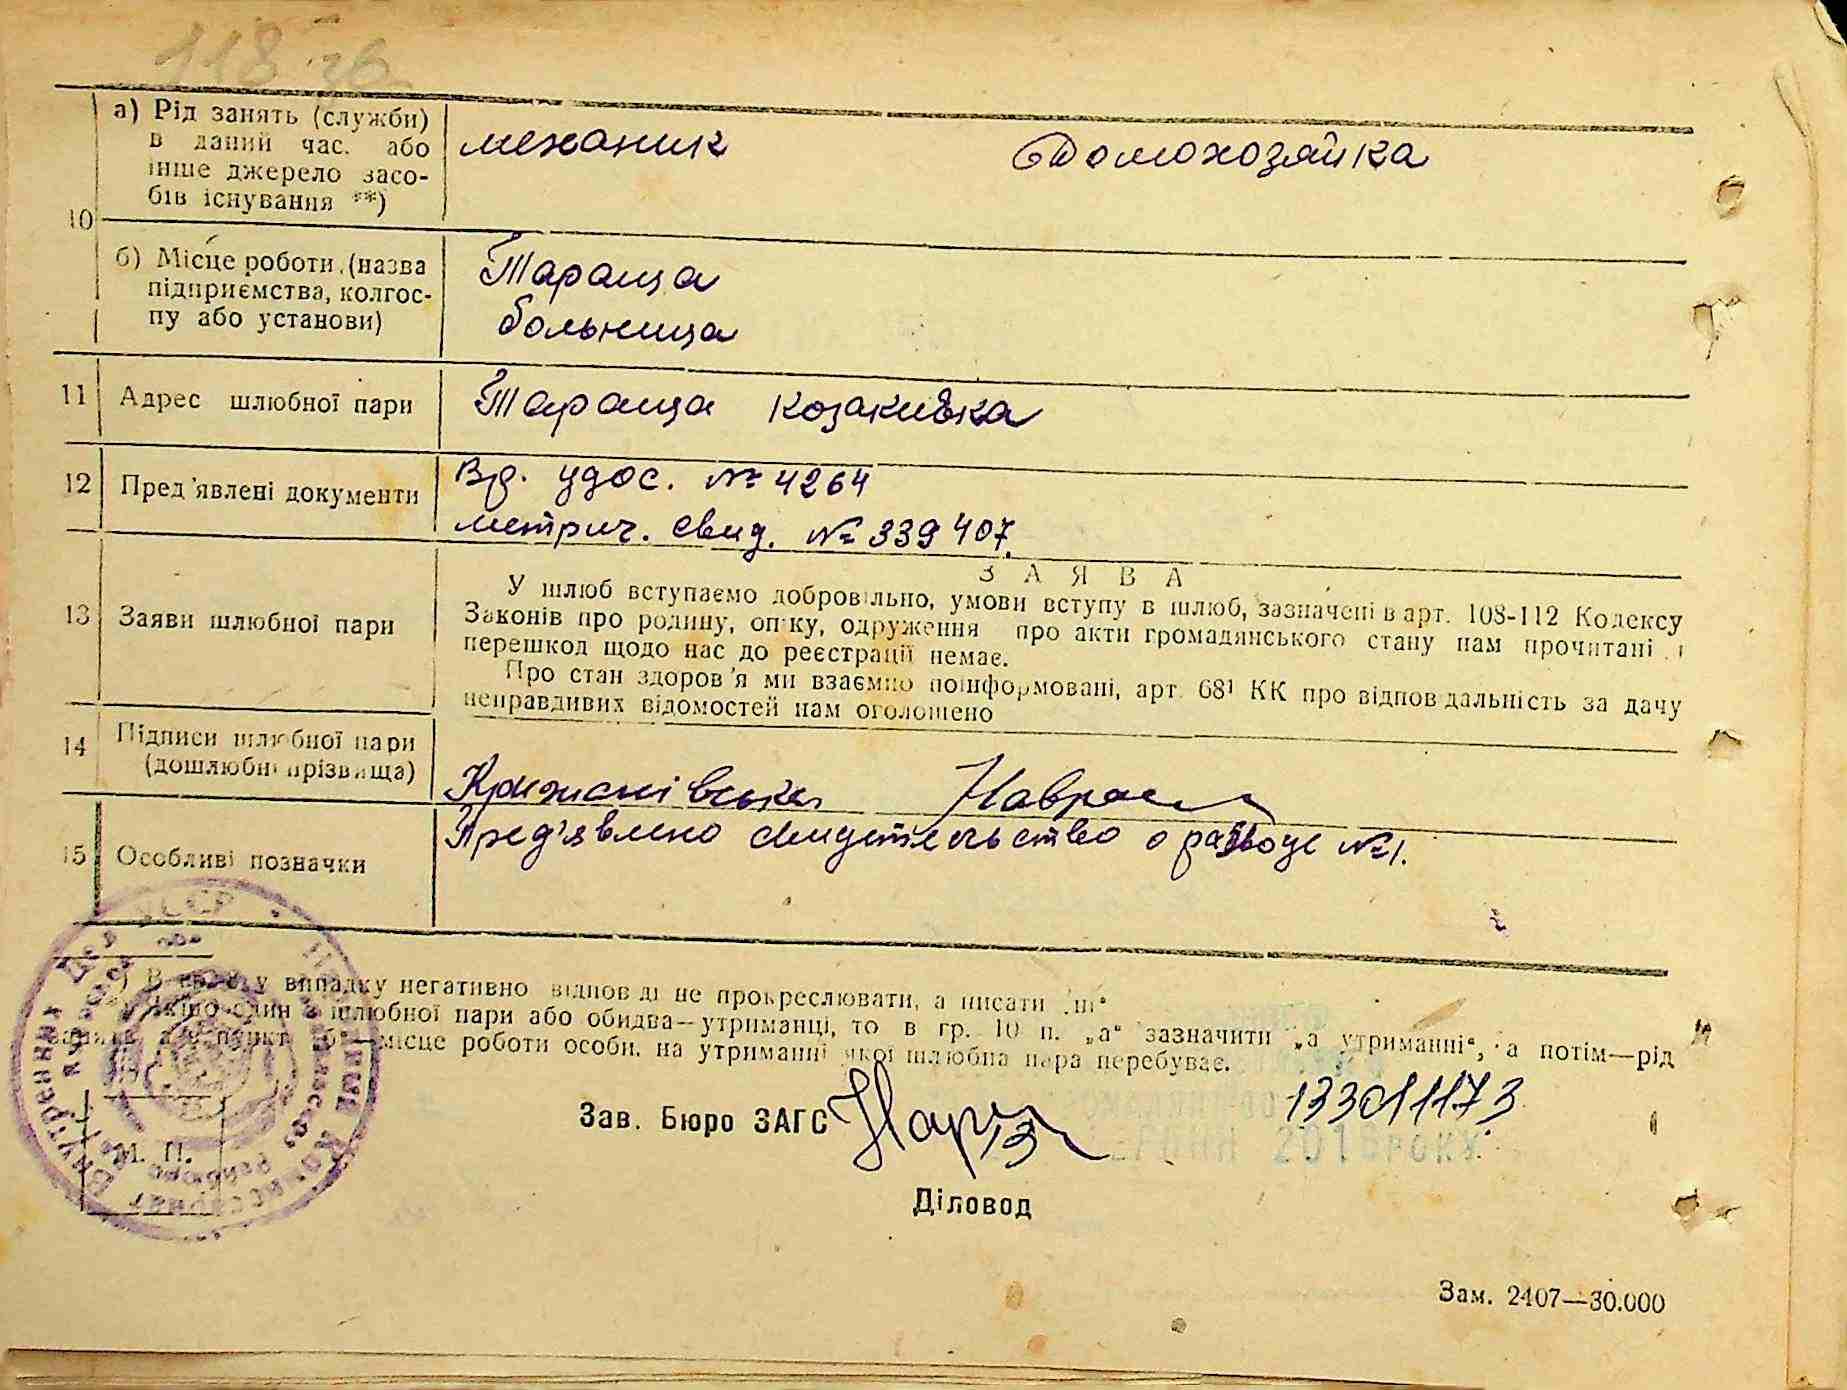 118 зв
10
а) Рід занять (служби)
в даний час. або
інше джерело засо-
бів існування **)
механик
Домохозяйка
б) Місце роботи (назва
підприємства, колгос-
пу або установи)
Тараща
больница
11 Адрес шлюбної пари
Тараща козакивка
12 Пред'явлені документи
Вр. удос. № 4264
метрич. свид. № 339407.
13 Заяви шлюбної пари
З А Я В А
У шлюб вступаємо добровільно, умови вступу в шлюб, зазначені в арт. 108-112 Кодексу
Законів про родину, опіку, одруження про акти громадянського стану нам прочитані і
перешкод щодо нас до реєстрації немає.
Про стан здоров'я ми взаємно поінформовані, арт. 68¹ КК про відповідальність за дачу
неправдивих відомостей нам оголошено
14 Підписи шлюбної пари
(дошлюбні прізвища)
Крижанівська
15 Особливі позначки
Пред'явлено свидетельство о разводе №1.
УССР
Внутренних Дел
Народный Комиссариат
у випадку негативно відповіді не прокреслювати, а писати „ні“
Якщо один з шлюбної пари або обидва—утриманці, то в гр. 10 п. „а“ зазначити „а утриманні“, а потім—рід
занять а в пункті „б“—місце роботи особи, на утриманні якої шлюбна пара перебуває.
Зав. Бюро ЗАГС
М. П.
2016 РОКУ
Діловод
Зам. 2407—30.000